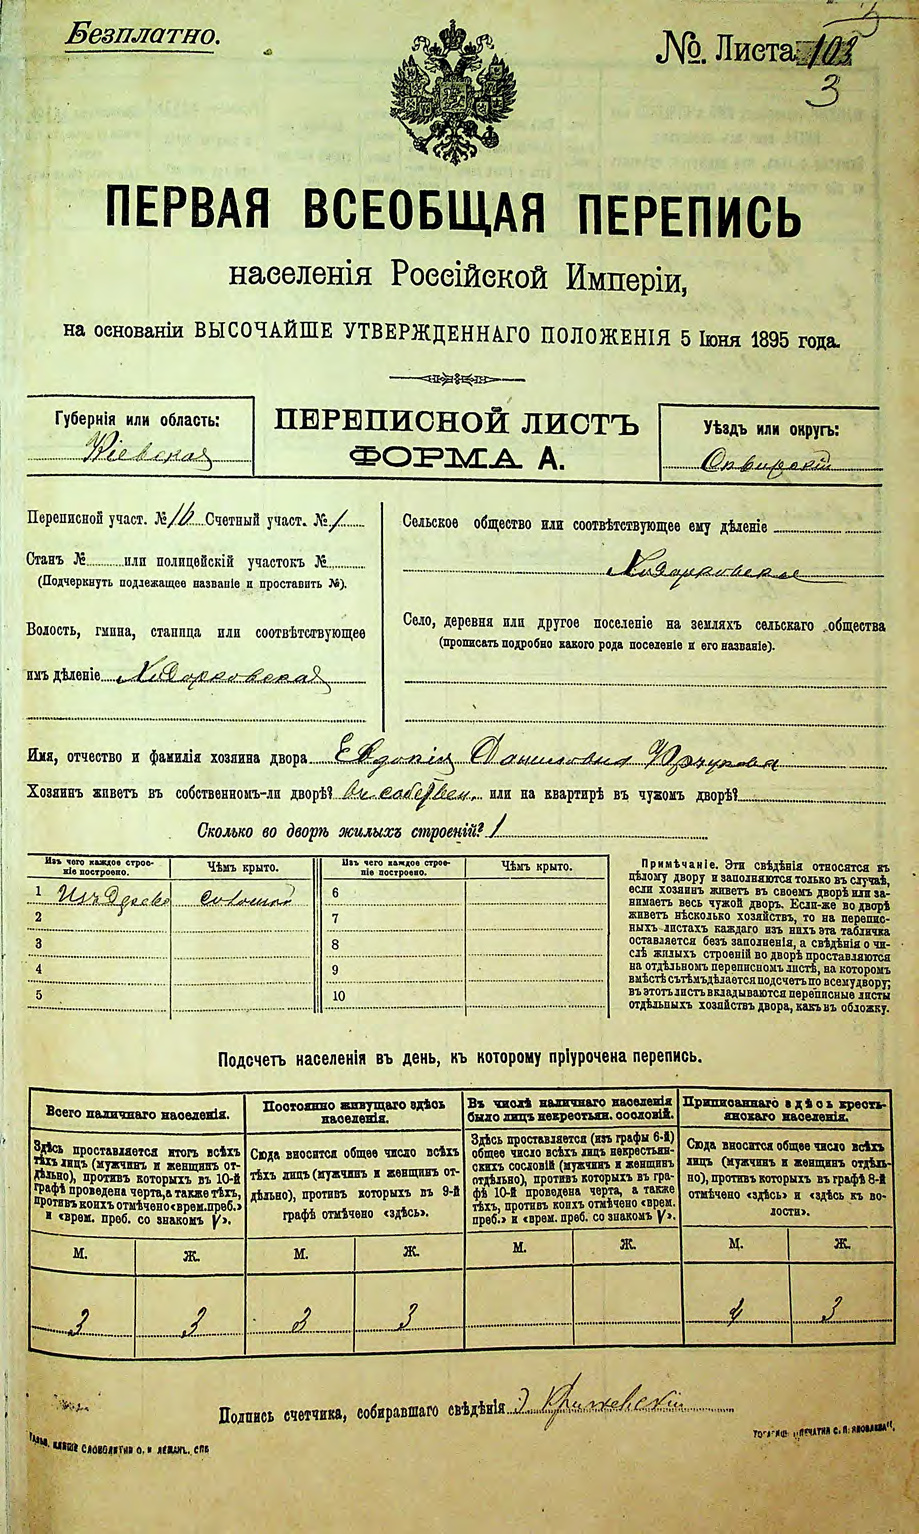 Безплатно.
№. Листа 103
3
ПЕРВАЯ ВСЕОБЩАЯ ПЕРЕПИСЬ
населенія Россійской Имперіи,
на основаніи ВЫСОЧАЙШЕ УТВЕРЖДЕННАГО ПОЛОЖЕНІЯ 5 Іюня 1895 года.
Губернія или область:
Кіевская
ПЕРЕПИСНОЙ ЛИСТЪ
ФОРМА А.
Уѣздъ или округъ:
Сквирскій
Переписной участ. № 16 Счетный участ. № 1
Станъ № или полицейскій участокъ №
(Подчеркнуть подлежащее названіе и проставить №).
Волость, гмина, станица или соотвѣтствующее
имъ дѣленіе Ходорковская
Сельское общество или соотвѣтствующее ему дѣленіе
Ходорковское
Село, деревня или другое поселеніе на земляхъ сельскаго общества
(прописать подробно какого рода поселеніе и его названіе).
Имя, отчество и фамилія хозяина двора Евдокія Даниловна
Хозяинъ живетъ въ собственномъ-ли дворѣ? въ собствен. или на квартирѣ въ чужомъ дворѣ?
Сколько во дворѣ жилыхъ строеній? 1
Изъ чего каждое строе-
ніе построено.
Чѣмъ крыто.
1 Изъ дерева соломой
2
3
4
5
Изъ чего каждое строе-
ніе построено.
Чѣмъ крыто.
6
7
8
9
10
Примѣчаніе. Эти свѣдѣнія относятся къ
цѣлому двору и заполняются только въ случаѣ,
если хозяинъ живетъ въ своемъ дворѣ или за-
нимаетъ весь чужой дворъ. Если-же во дворѣ
живетъ нѣсколько хозяйствъ, то на перепис-
ныхъ листахъ каждаго изъ нихъ эта табличка
оставляется безъ заполненія, а свѣдѣнія о чи-
слѣ жилыхъ строеній во дворѣ проставляются
на отдѣльномъ переписномъ листѣ, на которомъ
вмѣстѣ съ тѣмъ дѣлается подсчетъ по всему двору;
въ этотъ листъ вкладываются переписные листы
отдѣльныхъ хозяйствъ двора, какъ въ обложку.
Подсчетъ населенія въ день, къ которому пріурочена перепись.
Всего наличнаго населенія.
Здѣсь проставляется итогъ всѣхъ
тѣхъ лицъ (мужчинъ и женщинъ от-
дѣльно), противъ которыхъ въ 10-й
графѣ проведена черта, а также тѣхъ,
противъ коихъ отмѣчено «врем. преб.»
и «врем. преб. со знакомъ V».
М. Ж.
3 3
Постоянно живущаго здѣсь
населенія.
Сюда вносится общее число всѣхъ
тѣхъ лицъ (мужчинъ и женщинъ от-
дѣльно), противъ которыхъ въ 9-й
графѣ отмѣчено «здѣсь».
М. Ж.
3 3
Въ числѣ наличнаго населенія
было лицъ некрестьян. сословій.
Здѣсь проставляется (изъ графы 6-й)
общее число всѣхъ лицъ некрестьян-
скихъ сословій (мужчинъ и женщинъ
отдѣльно), противъ которыхъ въ гра-
фѣ 10-й проведена черта, а также
тѣхъ, противъ коихъ отмѣчено «врем.
преб.» и «врем. преб. со знакомъ V».
М. Ж.
Приписаннаго здѣсь кресть-
янскаго населенія.
Сюда вносится общее число всѣхъ
лицъ (мужчинъ и женщинъ отдѣль-
но), противъ которыхъ въ графѣ 8-й
отмѣчено «здѣсь» и «здѣсь къ во-
лости».
М. Ж.
4 3
Подпись счетчика, собиравшаго свѣдѣнія
СЛОВОЛИТНИ О. И. ЛЕМАНЪ. СПБ
„ПЕЧАТНЯ С. П. ЯКОВЛЕВА“.